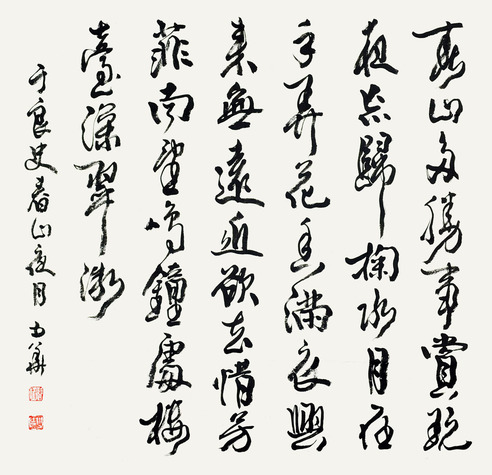 春山多勝事賞玩
夜忘歸掬水月在
手弄花香滿衣興
來無遠近欲去惜芳
菲南望鳴鐘處樓
臺深翠微
于良史春山夜月